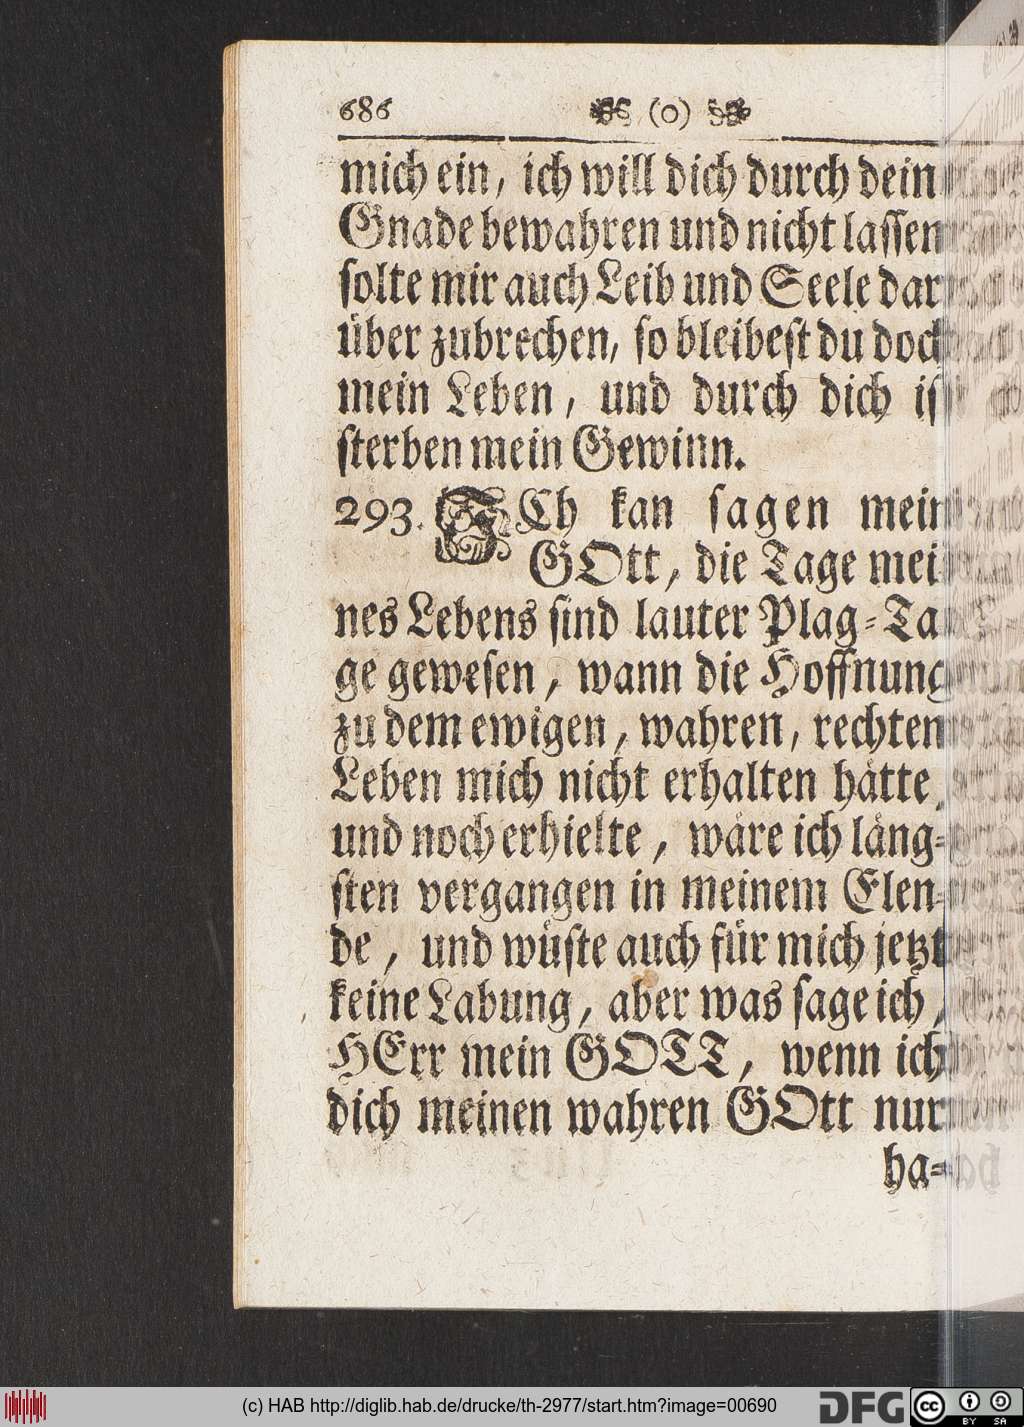 686 (0)
mich ein, ich will dich durch dein
Gnade bewahren und nicht lassen
solte mir auch Leib und Seele dar
über zubrechen, so bleibest du doch
mein Leben, und durch dich ist
sterben mein Gewinn.
293. ICh kan sagen mein
GOtt, die Tage mei
nes Lebens sind lauter Plag-Ta
ge gewesen, wann die Hoffnung
zu dem ewigen, wahren, rechten
Leben mich nicht erhalten hätte,
und noch erhielte, wäre ich läng-
sten vergangen in meinem Elen-
de, und wüste auch für mich jetzt
keine Labung, aber was sage ich,
HErr mein GOTT, wenn ich
dich meinen wahren GOtt nur
ha-
(c) HAB http://diglib.hab.de/drucke/th-2977/start.htm?image=00690
DFG
cc BY SA